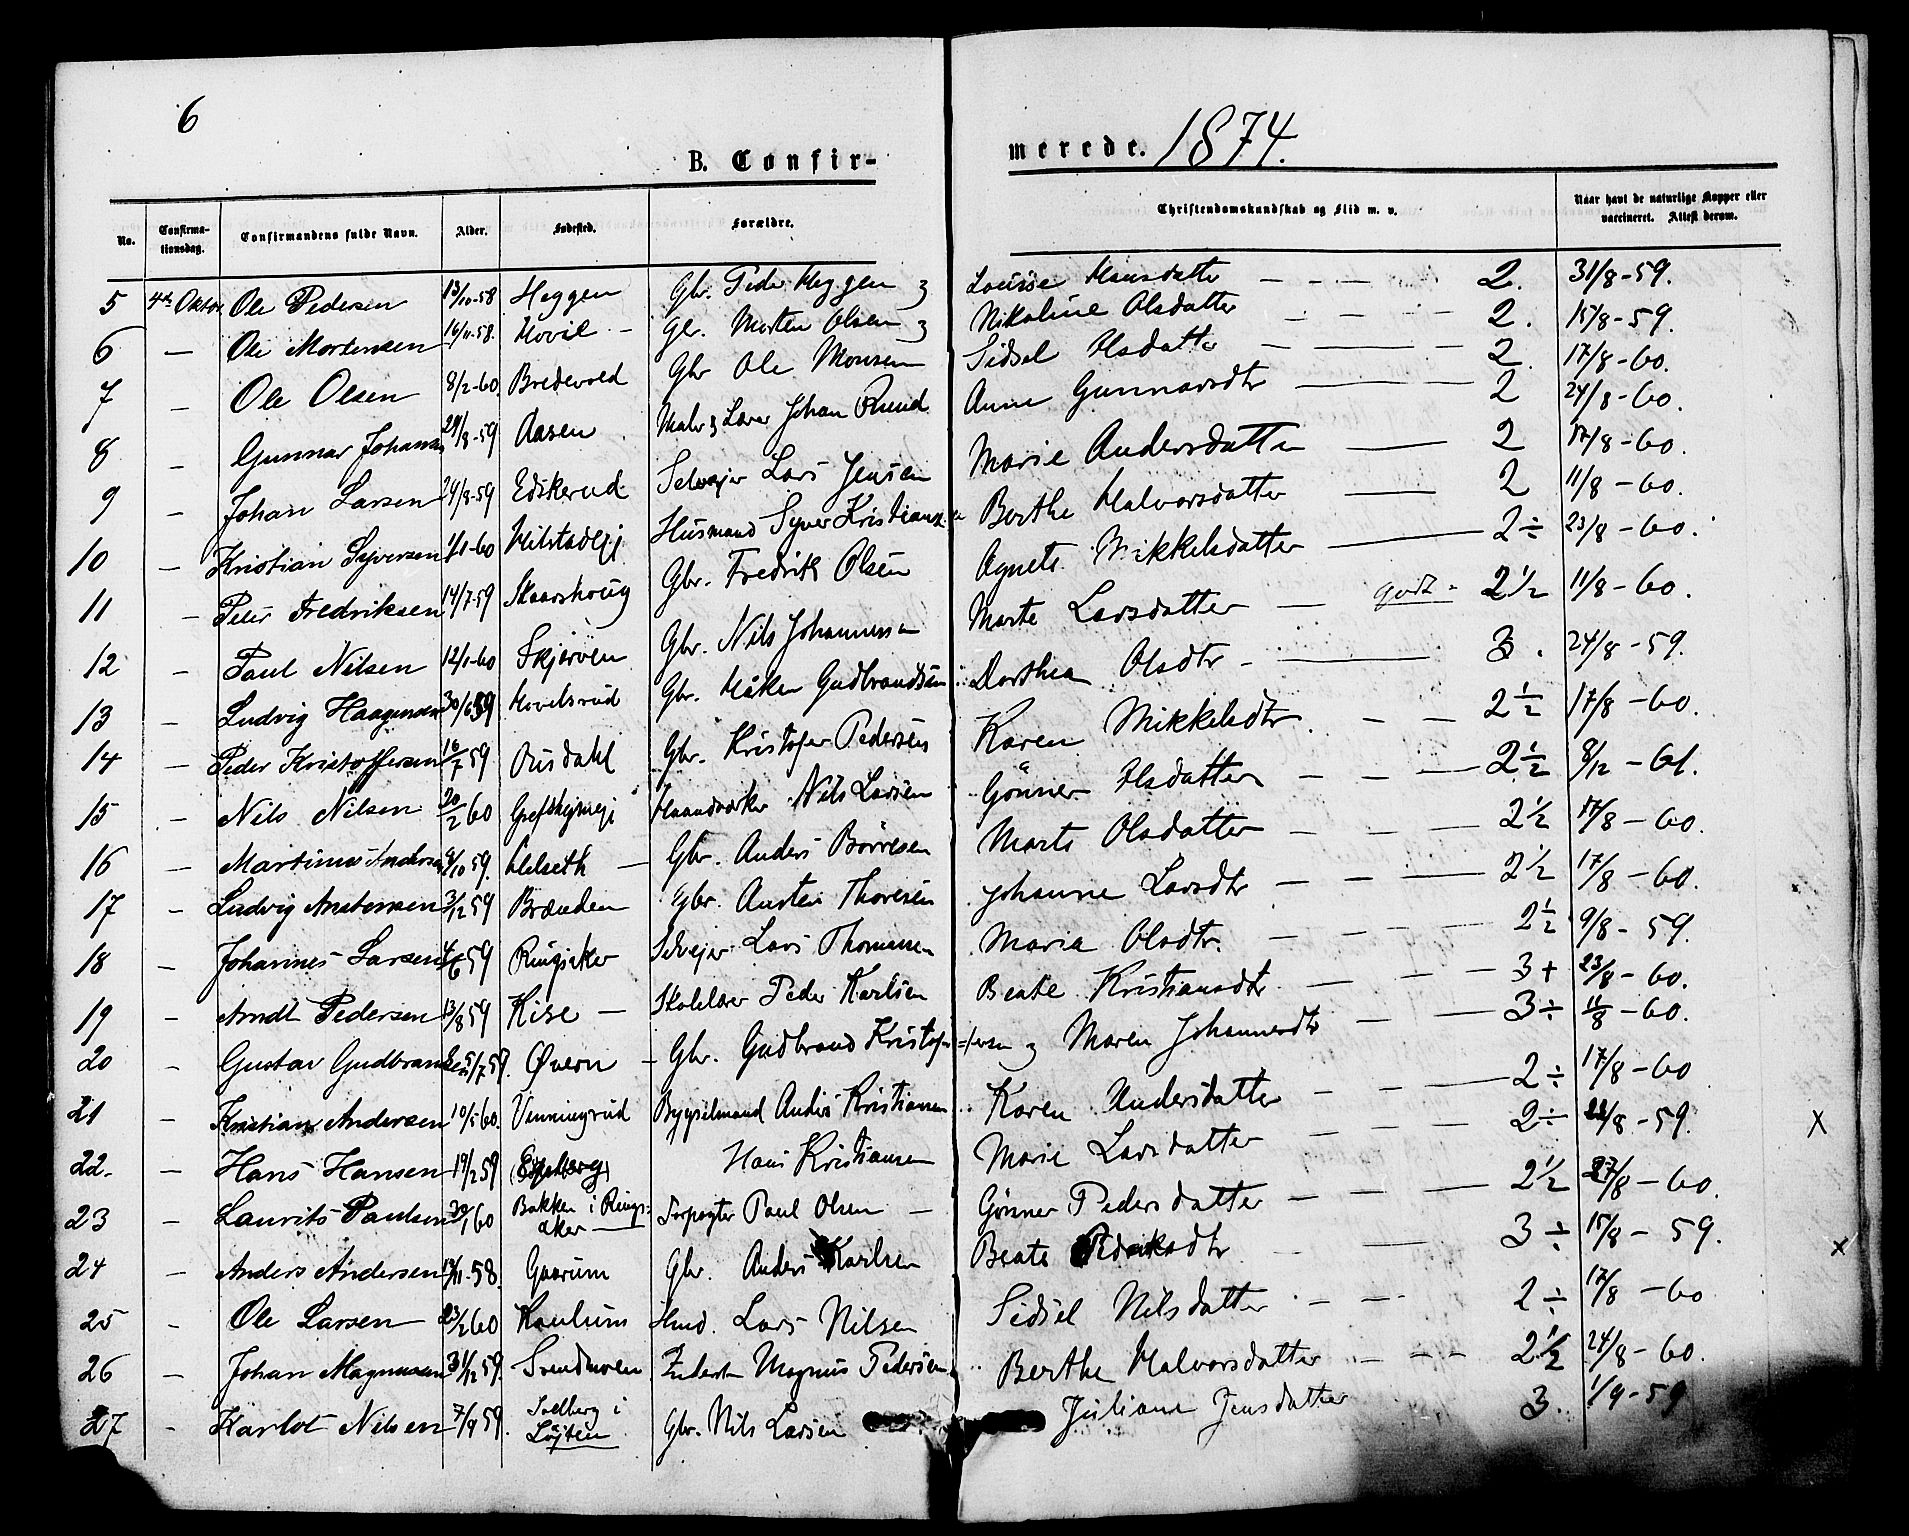 6
B. Confir-
merede. 1874.
No. Confirma-tionsdag. Confirmandens fulde Navn. Alder. Fødested. Forældre. Christendomskundskab og Flid m. v. Naar havt de naturlige Kopper eller vaccineret. Attest derom.
5 4de Oktbr. Ole Pedersen 13/10-58 Heggen Gbr. Peder Heggen og Louise Hansdatter 2. 31/8-59.
6 — Ole Mortensen 16/11-58. Hovil Gbr. Morten Olsen og Nikoline Olsdatter 2. 15/8-59.
7 — Ole Olsen 8/2-60. Bredevold Gbr Ole Monsen Sidsel Olsdatter 2. 17/8-60.
8 — Gunnar Johansen 29/8-59 Aasen Maler & Lærer Johan Ruud Anne Gunnarsdtr 2 24/8-60.
9 — Johan Larsen 24/8-59 Edskerud Selvejer Lars Jensen Marie Andersdatter 2 17/8-60.
10 — Kristian Syversen 1/1-60 Hilstadejj Husmand Syver Kristiansen Berthe Halvorsdatter 2 11/8-60.
11 — Peter Fredriksen 14/7-59 Skaarshoug Gbr. Fredrik Olsen Agnete Mikkelsdatter 2÷ 23/8-60.
12 — Paul Nilsen 12/1-60 Skjerven Gbr. Nils Johannessen Marte Larsdatter godt 2½ 11/8-60.
13 — Ludvig Haagensen 30/6 59 Hovelsrud Gbr. Håken Gudbrandsen Dorthea Olsdtr 3. 24/8-59.
14 — Peder Kristoffersen 16/7 59 Ousdahl Gbr. Kristofer Pedersen Karen Mikkelsdtr. 2½ 17/8-60.
15 — Nils Nilsen 20/2 60 Haandværker Nils Larsen Gönner Olsdatter 2½ 8/12-61.
16 — Martinus Andersen 9/10 59. Helseth Gbr. Anders Börresen Marte Olsdatter 2½ 17/8-60.
17 — Ludvig Austensen 3/12 59 Brænden Gbr. Austen Thoresen Johanne Larsdtr 2½ 17/8-60.
18 — Johannes Larsen 4/6 59 Ringsaker Selvejer Lars Thomasen Maria Olsdtr. 2½ 9/8-59.
19 — Arndt Pedersen 13/8 59 Kise Skolelærer Peder Karlsen Beate Kristiansdtr. 3+ 23/8-60.
20 — Gustav Gudbrandsen 5/7 59. Øvern Gbr. Gudbrand Kristofersen og Maren Johannesdtr 3÷ 11/8-60.
21 — Kristian Andersen 10/5 60. Venningrud Bygselmand Anders Kristiansen Karen Andersdatter 2÷ 17/8-60
22. — Hans Hansen 19/2 59 Hans Kristiansen Marie Larsdatter 2÷ 22/8-59. X
23 — Laurits Paulsen 30/1 60 Bakken i Ringsaker Forpagter Paul Olsen Gönner Pedersdatter 2½ 27/8-60.
24 — Anders Andersen 19/11-58. Gaarum Gbr. Anders Karlsen Beate 3÷ 15/8-59. x
25 — Ole Larsen 23/2 60 Kaulum Hmd. Lars Nilsen Sidsel Nilsdatter 2÷ 17/8-60
26 — Johan Magnussen 31/12 59. Svendmoen Inderst Magnus Pedersen Berthe Halvorsdatter 2½ 24/8-60.
27 — Karlot Nilsen 7/9 59. Solberg i Löjten Gbr. Nils Larsen Juliane Jensdatter 3. 1/9-59